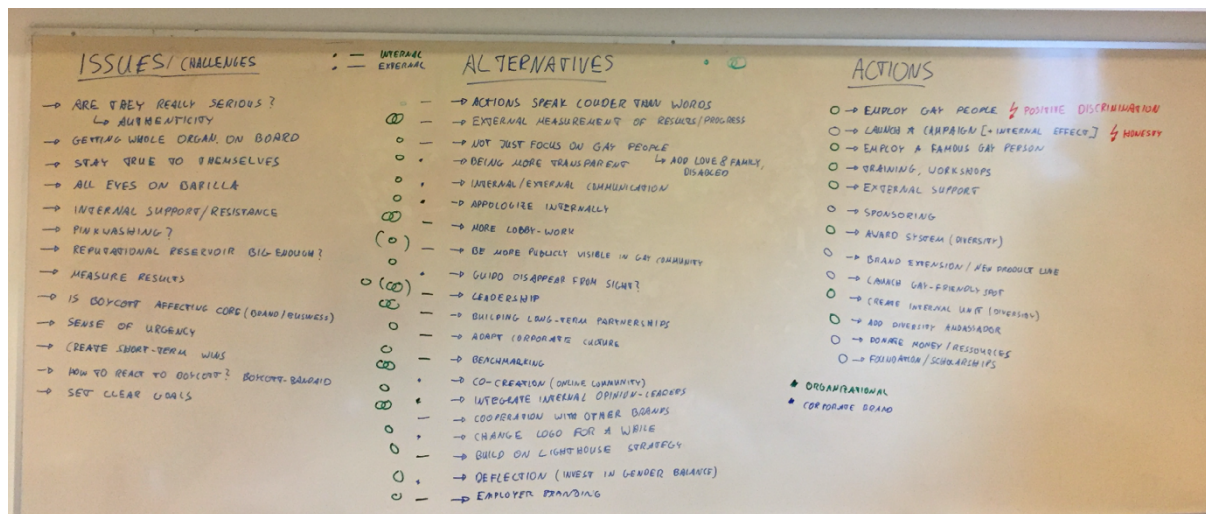 ISSUES/CHALLENGES
→ ARE THEY REALLY SERIOUS?
↳ AUTHENTICITY
→ GETTING WHOLE ORGAN. ON BOARD
→ STAY TRUE TO THEMSELVES
→ ALL EYES ON BARILLA
→ INTERNAL SUPPORT/RESISTANCE
→ PINKWASHING?
→ REPUTATIONAL RESERVOIR BIG ENOUGH?
→ MEASURE RESULTS
→ IS BOYCOTT AFFECTING CORE (BRAND/BUSINESS)
→ SENSE OF URGENCY
→ CREATE SHORT-TERM WINS
→ HOW TO REACT TO BOYCOTT? BOYCOTT-BANDAID
→ SET CLEAR GOALS
INTERNAL
EXTERNAL
ALTERNATIVES
→ ACTIONS SPEAK LOUDER THAN WORDS
→ EXTERNAL MEASUREMENT OF RESULTS/PROGRESS
→ NOT JUST FOCUS ON GAY PEOPLE
↳ ADD LOVE & FAMILY, DISABLED
→ BEING MORE TRANSPARENT
→ INTERNAL/EXTERNAL COMMUNICATION
→ APPOLOGIZE INTERNALLY
→ MORE LOBBY-WORK
→ BE MORE PUBLICLY VISIBLE IN GAY COMMUNITY
→ GUIDO DISAPPEAR FROM SIGHT?
→ LEADERSHIP
→ BUILDING LONG-TERM PARTNERSHIPS
→ ADAPT CORPORATE CULTURE
→ BENCHMARKING
→ CO-CREATION (ONLINE COMMUNITY)
→ INTEGRATE INTERNAL OPINION-LEADERS
→ COOPERATION WITH OTHER BRANDS
→ CHANGE LOGO FOR A WHILE
→ BUILD ON LIGHTHOUSE STRATEGY
→ DEFLECTION (INVEST IN GENDER BALANCE)
→ EMPLOYER BRANDING
ACTIONS
→ EMPLOY GAY PEOPLE POSITIVE DISCRIMINATION
→ LAUNCH A CAMPAIGN [+ INTERNAL EFFECT] HONESTY
→ EMPLOY A FAMOUS GAY PERSON
→ TRAINING, WORKSHOPS
→ EXTERNAL SUPPORT
→ SPONSORING
→ AWARD SYSTEM (DIVERSITY)
→ BRAND EXTENSION/NEW PRODUCT LINE
→ LAUNCH GAY-FRIENDLY SPOT
→ CREATE INTERNAL UNIT (DIVERSITY)
→ ADD DIVERSITY AMBASSADOR
→ DONATE MONEY/RESSOURCES
→ FOUNDATION/SCHOLARSHIPS
ORGANIZATIONAL
CORPORATE BRAND